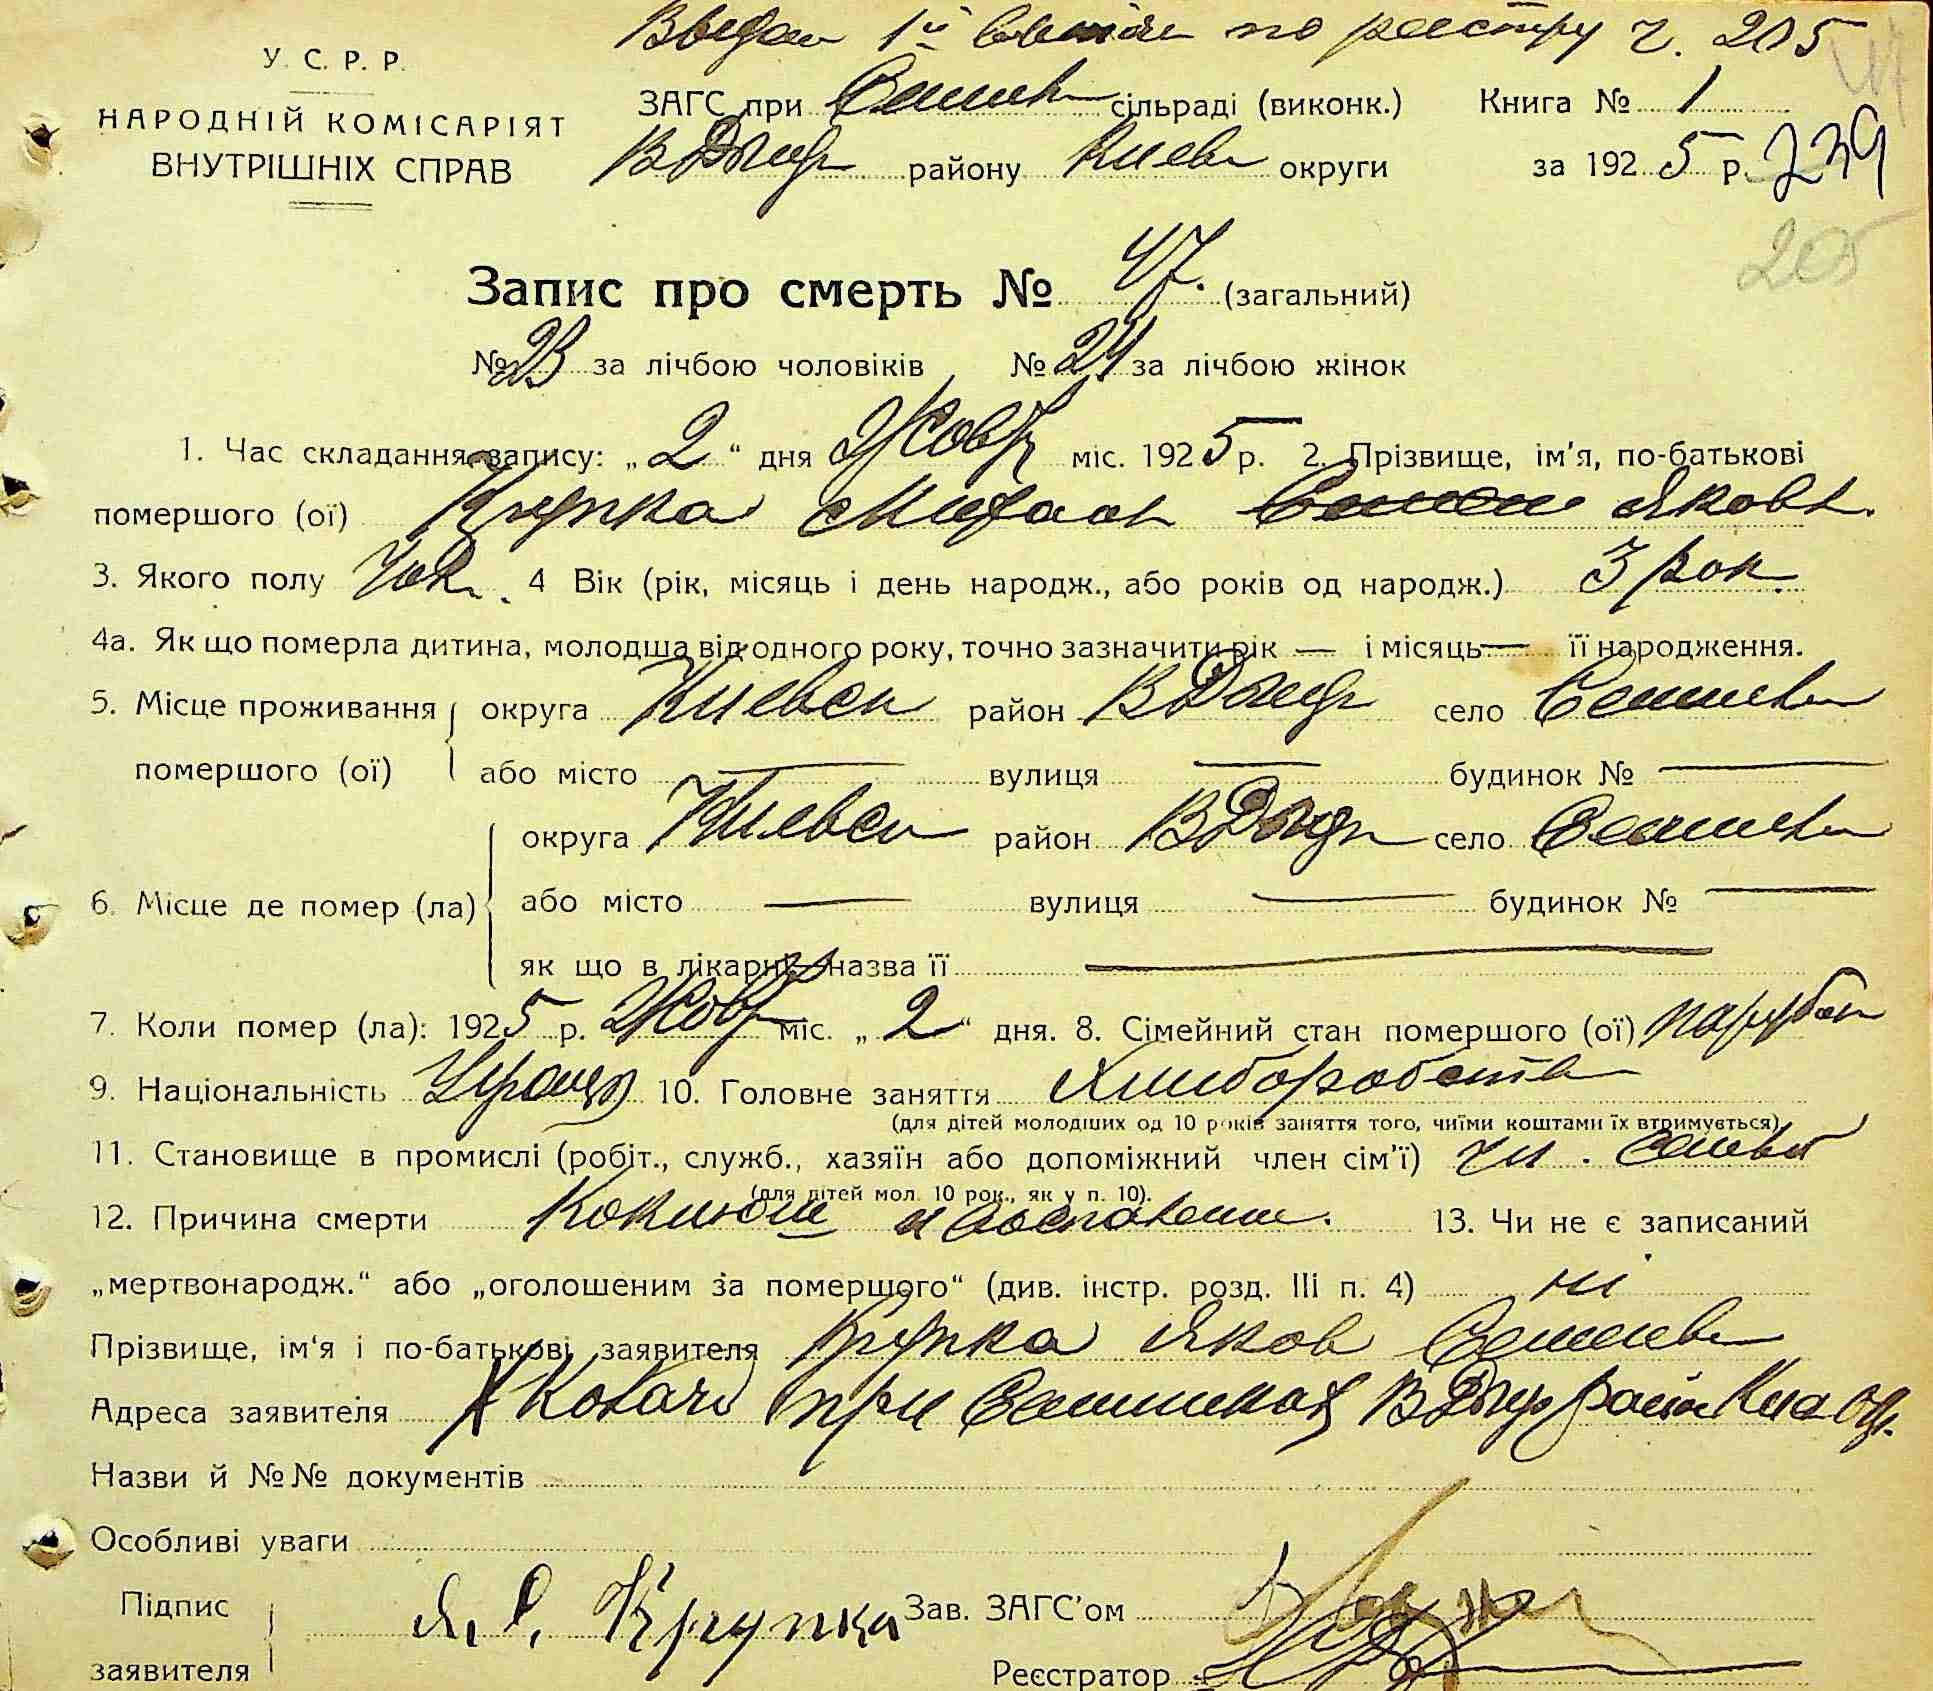 по реєстру ч. 205
У. С. Р. Р.
НАРОДНІЙ КОМІСАРІЯТ
ВНУТРІШНІХ СПРАВ
ЗАГС при сільраді (виконк.) Книга № 1
району Киев округи за 1925 р. 239
205
Запис про смерть № 47. (загальний)
№ 23 за лічбою чоловіків № 24 за лічбою жінок
1. Час складання запису: „2“ дня Жовт міс. 1925 р. 2. Прізвище, ім'я, по-батькові
помершого (ої) Крупка Михаил Яковл.
3. Якого полу чол. 4 Вік (рік, місяць і день народж., або років од народж.) 3 рок.
4а. Як що померла дитина, молодша від одного року, точно зазначити рік — і місяць — її народження.
5. Місце проживання округа Киевск район В Дымер село
помершого (ої) або місто — вулиця — будинок № —
округа Киевск район В Дымер село
6. Місце де помер (ла) або місто — вулиця — будинок № —
як що в лікарні, назва її —
7. Коли помер (ла): 1925 р. Жовт міс. „2“ дня. 8. Сімейний стан помершого (ої) парубок
9. Національність 10. Головне заняття Хлиборобств
(для дітей молодших од 10 років заняття того, чиїми коштами їх втримується)
11. Становище в промислі (робіт., служб., хазяїн або допоміжний член сім'ї) чл. семьи
(для дітей мол. 10 рок., як у п. 10).
12. Причина смерти Коклюш и воспаление. 13. Чи не є записаний
„мертвонародж.“ або „оголошеним за помершого“ (див. інстр. розд. III п. 4) ні
Прізвище, ім'я і по-батькові заявителя Крупка Яков Семенов
Адреса заявителя при В Дымер район
Назви й №№ документів
Особливі уваги
Підпис
заявителя Я. С. Крупка Зав. ЗАГС'ом
Реєстратор